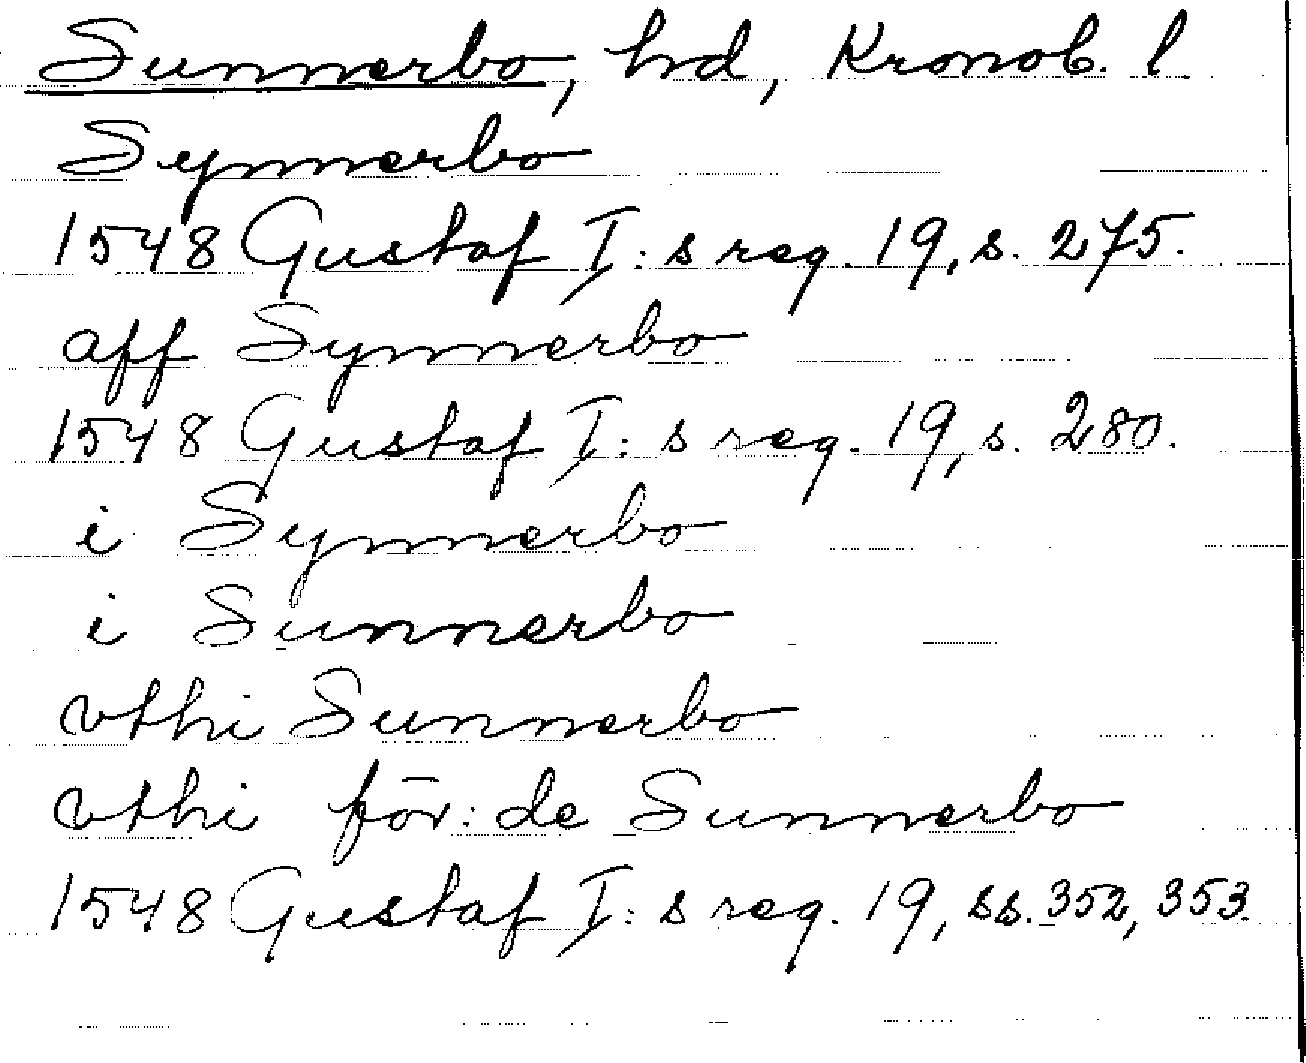 Sunnerbo, hd, Kronob. l
Synnerbo
1548 Gustaf I:s reg. 19, s. 275.
aff Synnerbo
1548 Gustaf I:s reg. 19, s. 280.
i Synnerbo
i Sunnerbo
vthi Sunnerbo
vthi för:de Sunnerbo
1548 Gustaf I:s reg. 19, ss. 352, 353.